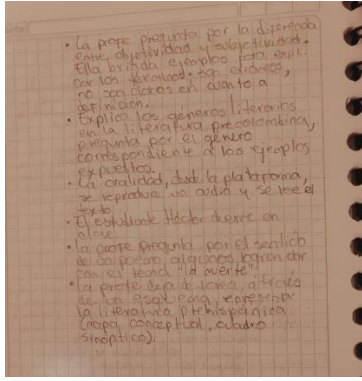 • La profe pregunta por la diferencia
entre objetividad y subjetividad.
Ella brinda ejemplos para expli-
car los términos: son
no son claros en cuanto a
definición.
• Explica los géneros literarios
en la literatura precolombina,
pregunta por el género
correspondiente a los ejemplos
expuestos.
• La oralidad, desde la plataforma,
se reproduce un audio y se lee el
texto
• El estudiante Héctor duerme en
clase.
• La profe pregunta por el sentido
de un poema, algunos logran dar
con el tema "la muerte"
• La profe deja de tarea a través
de un esquema, representar
la literatura prehispánica
(mapa conceptual, cuadro
sinóptico).